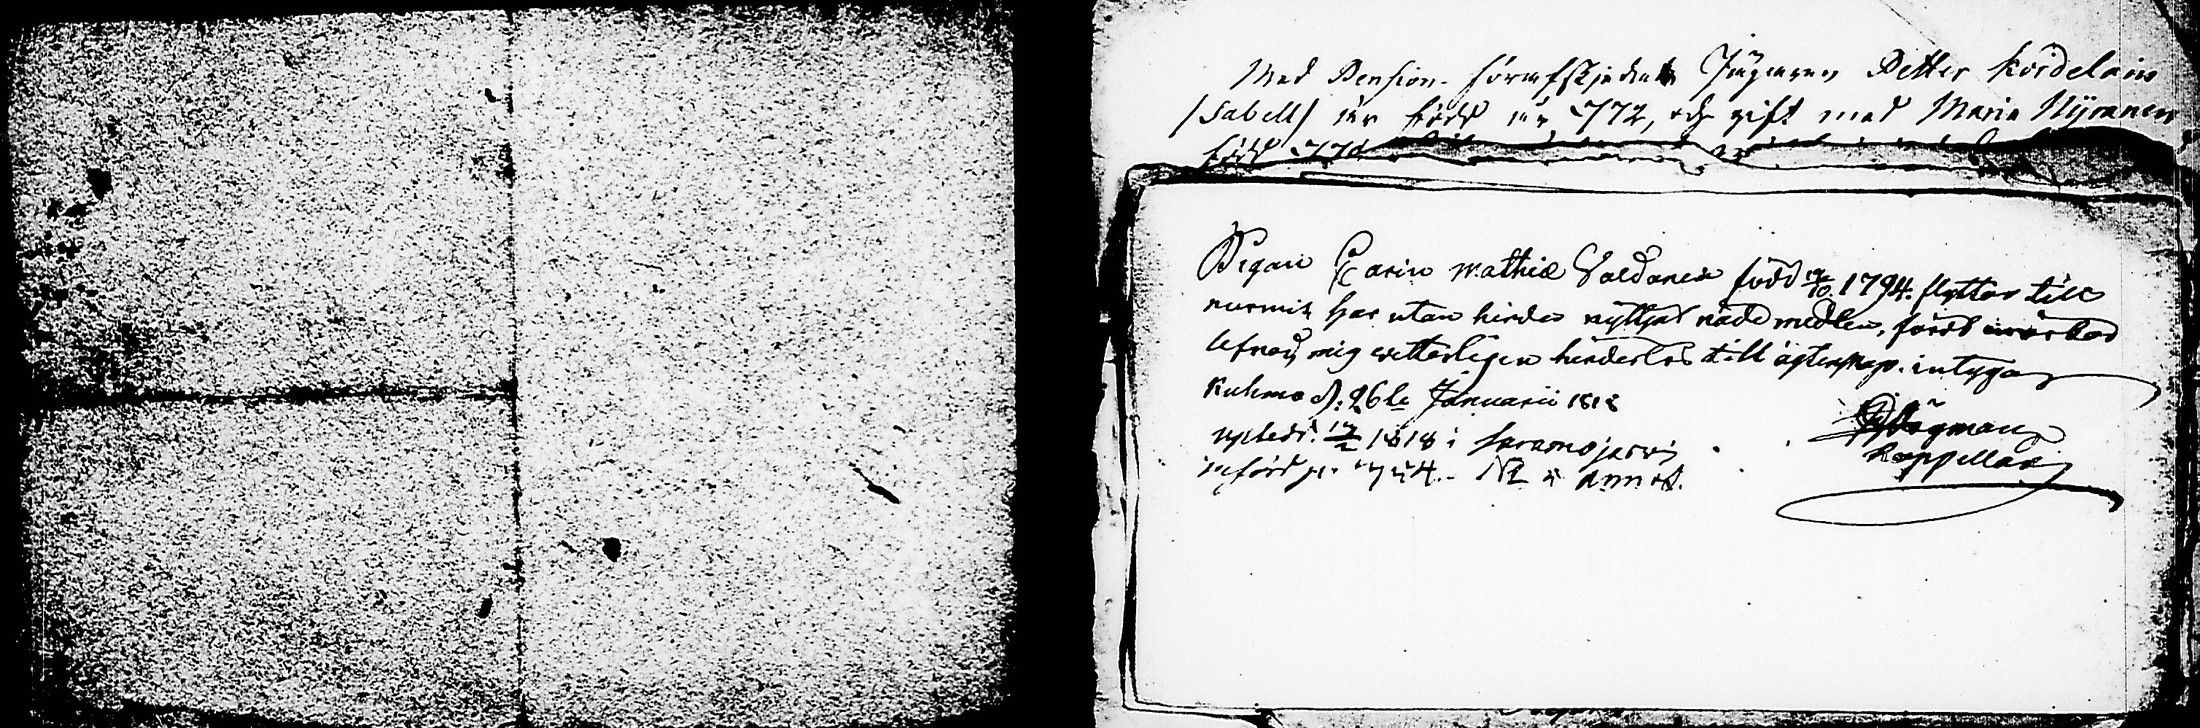 Med Pension förafskjedade Jägaren Petter Kordelain
/Sabell/ är född år 1772, och gift med Maria Nyranen
född 177
Pigan Carin Mathiæ Valdanen född 19/10 1794. flyttar till
nurmis har utan hinder nyttjat nådemedlen, fördt
lefnad, mig vetterligen hinderlös till ägtenskap. intygar
Kuhmo d. 26te Januarii 1818
upledt. 1818 i Saramojarvi
införd p. N2 Annot.
Högman
Kappellan